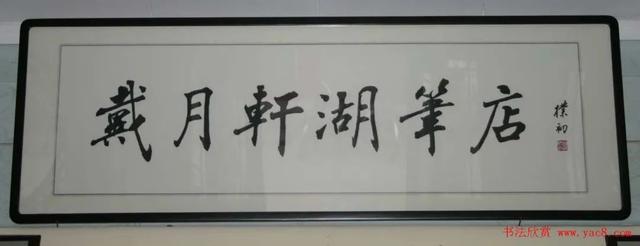 戴月軒湖筆店
樸初
书法欣赏 www.yac8.com